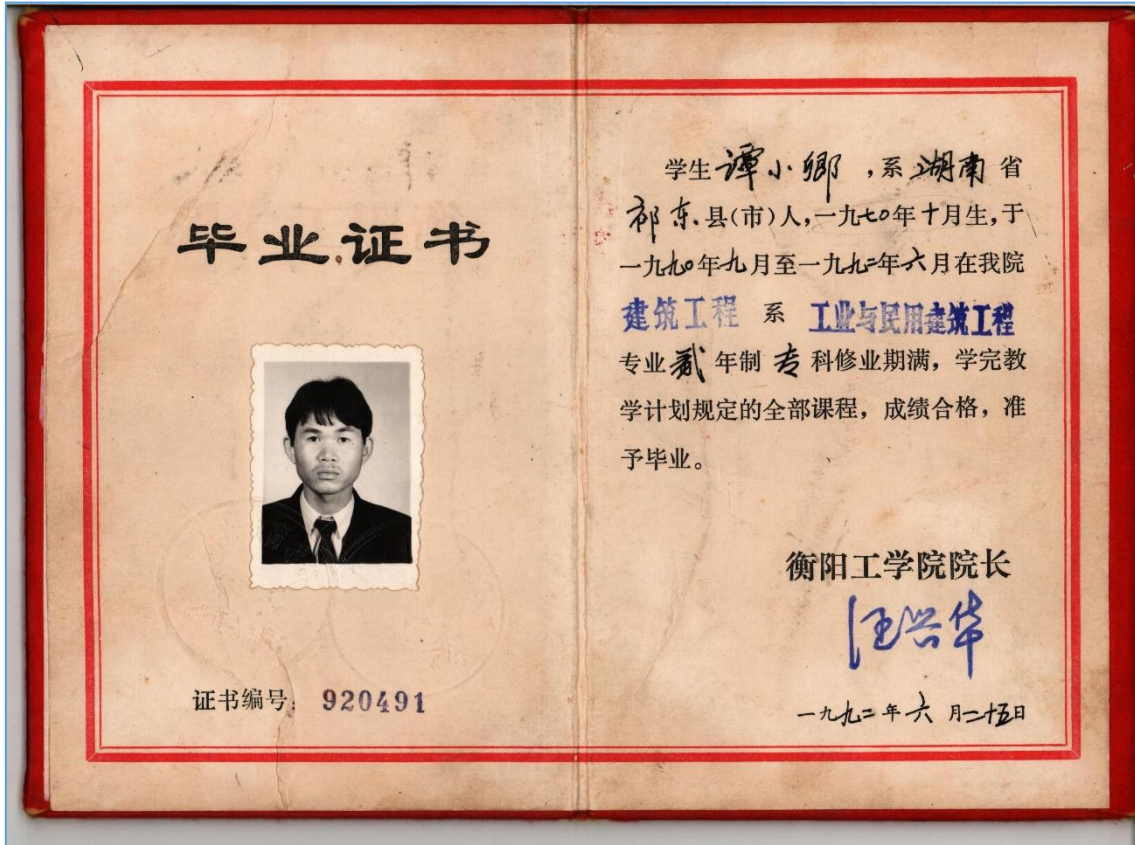 毕业证书
证书编号: 920491
学生谭小乡,系湖南省
祁东县(市)人,一九七〇年十月生,于
一九九〇年九月至一九九二年六月在我院
建筑工程 系 工业与民用建筑工程
专业贰年制专科修业期满,学完教
学计划规定的全部课程,成绩合格,准
予毕业。
衡阳工学院院长
汪兴华
一九九二年六月二十五日